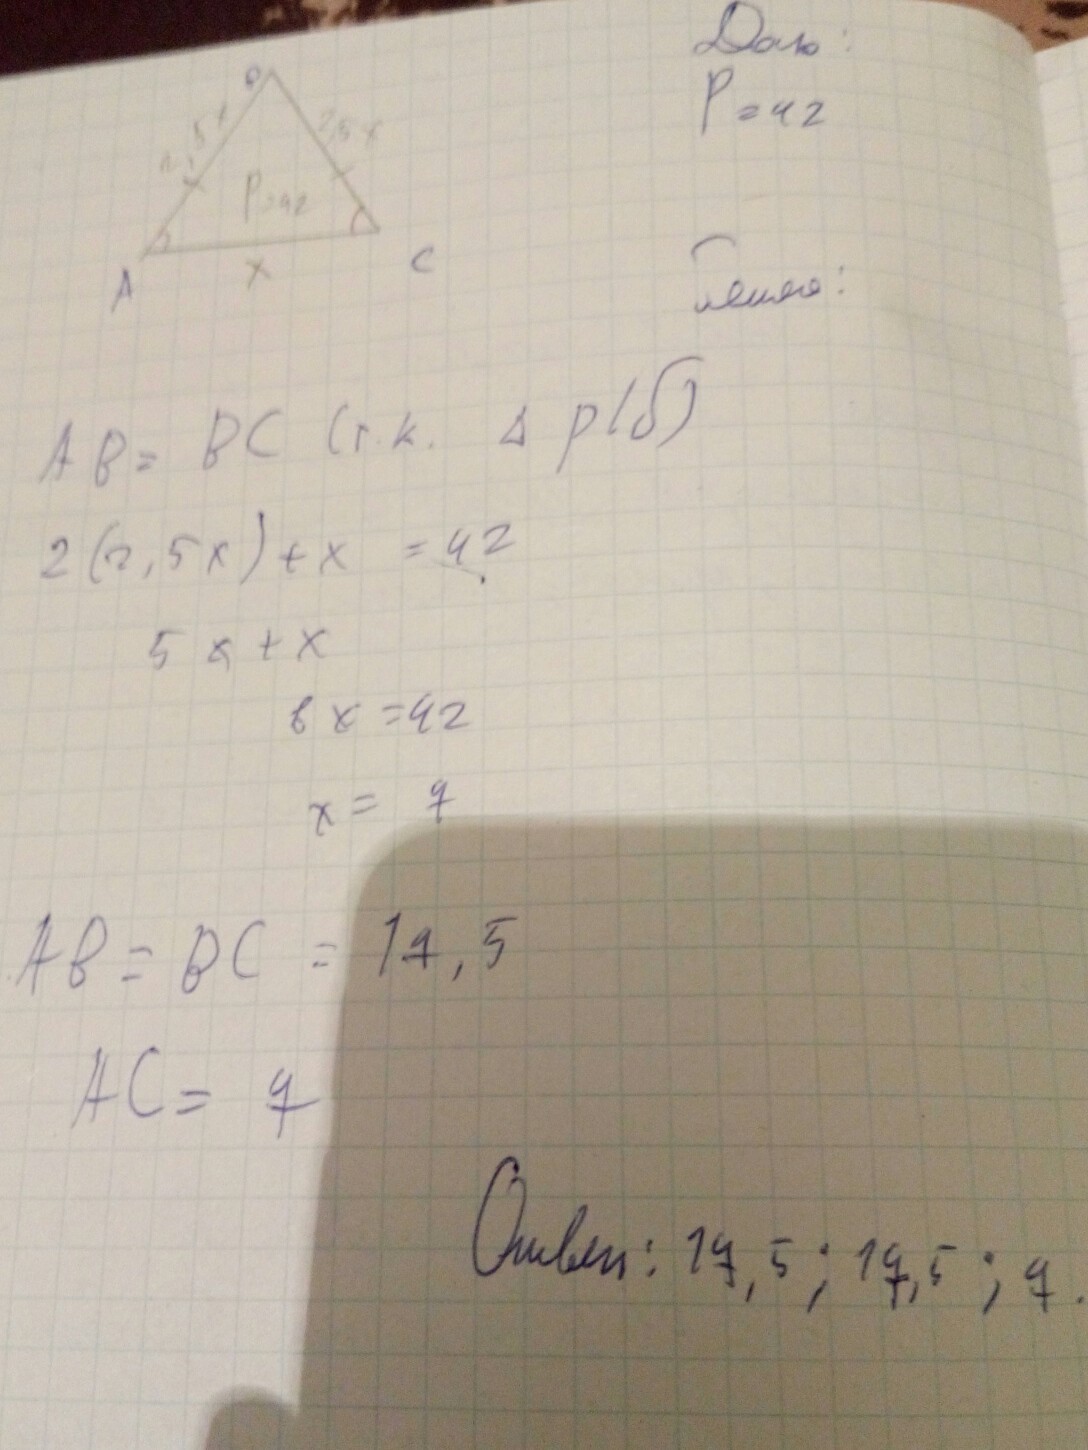 Дано:
P=42
B
2,5x
2,5x
P=42
A
x
C
Решение:
AB = BC (т.к. Δ р/б)
2(2,5x)+x = 42
5x+x
6x=42
x = 7
AB = BC = 17,5
AC = 7
Ответ: 17,5; 17,5; 7.